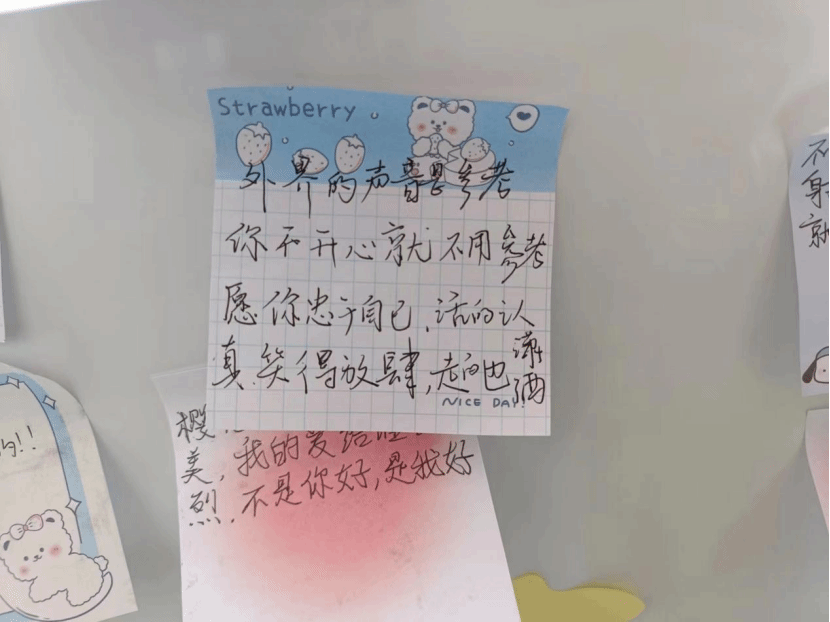 Strawberry
外界的声音是参考
你不开心就不用参考
愿你忠于自己,活的认
真,笑得放肆,走的也潇洒
NICE DAY!
樱
美,我的爱给
烈,不是你好,是我好
的!!
不
身
就